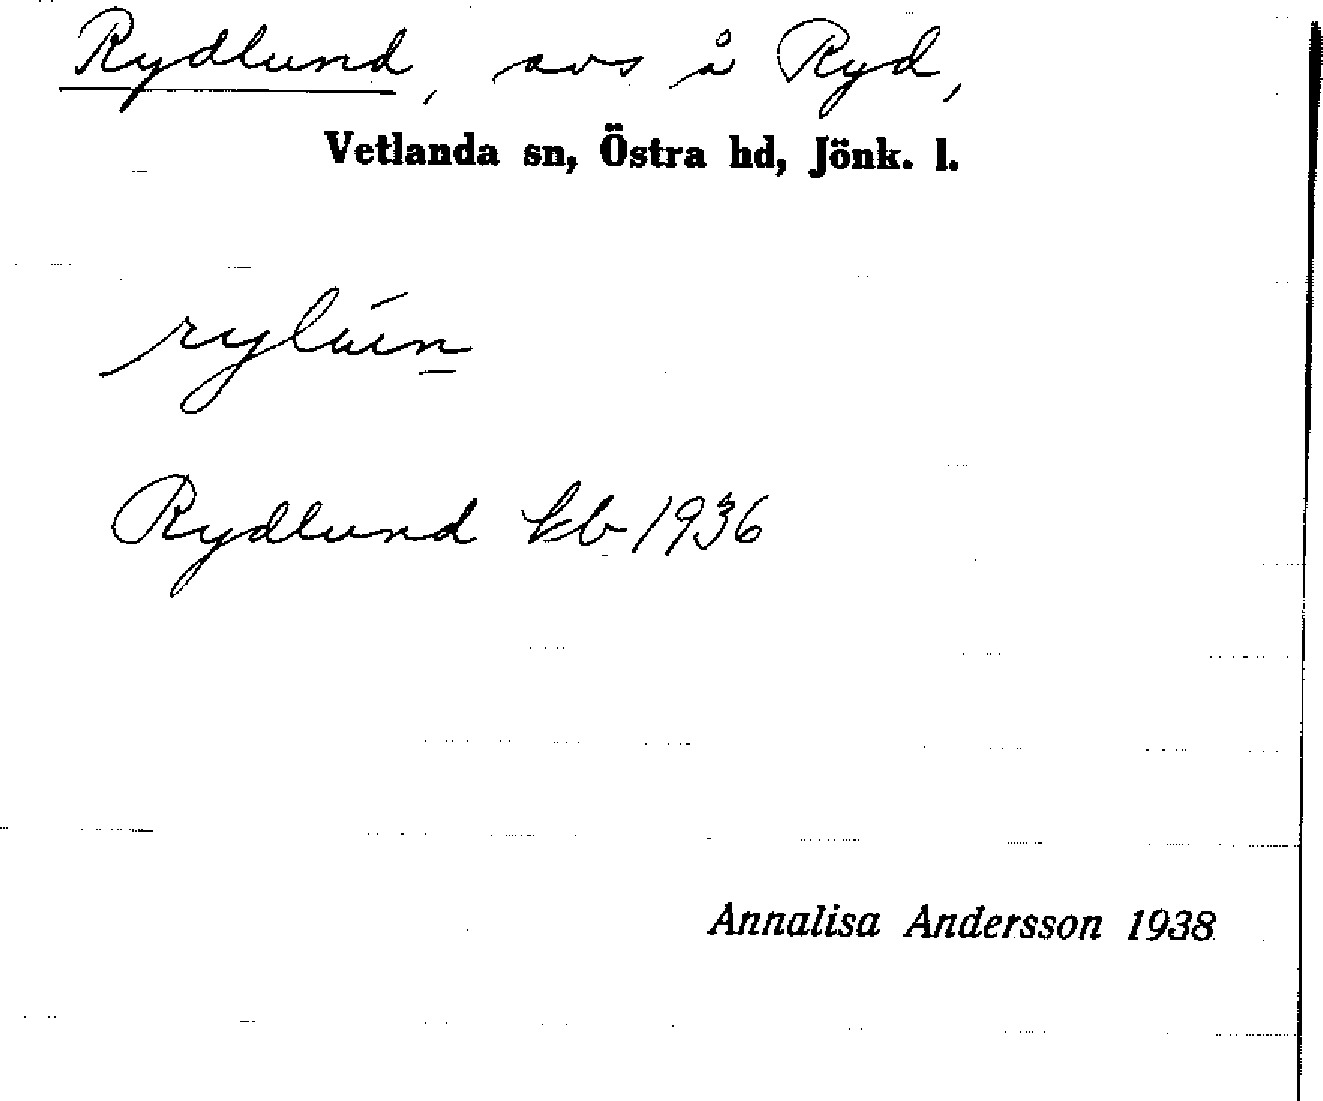 Rydlund, avs å Ryd,
Vetlanda sn, Östra hd, Jönk. l.
Rydlund kb 1936
Annalisa Andersson 1938